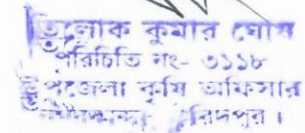 ত্রিলোক কুমার ঘোষ
পরিচিতি নং- ৩১১৮
উপজেলা কৃষি অফিসার
ফরিদপুর।